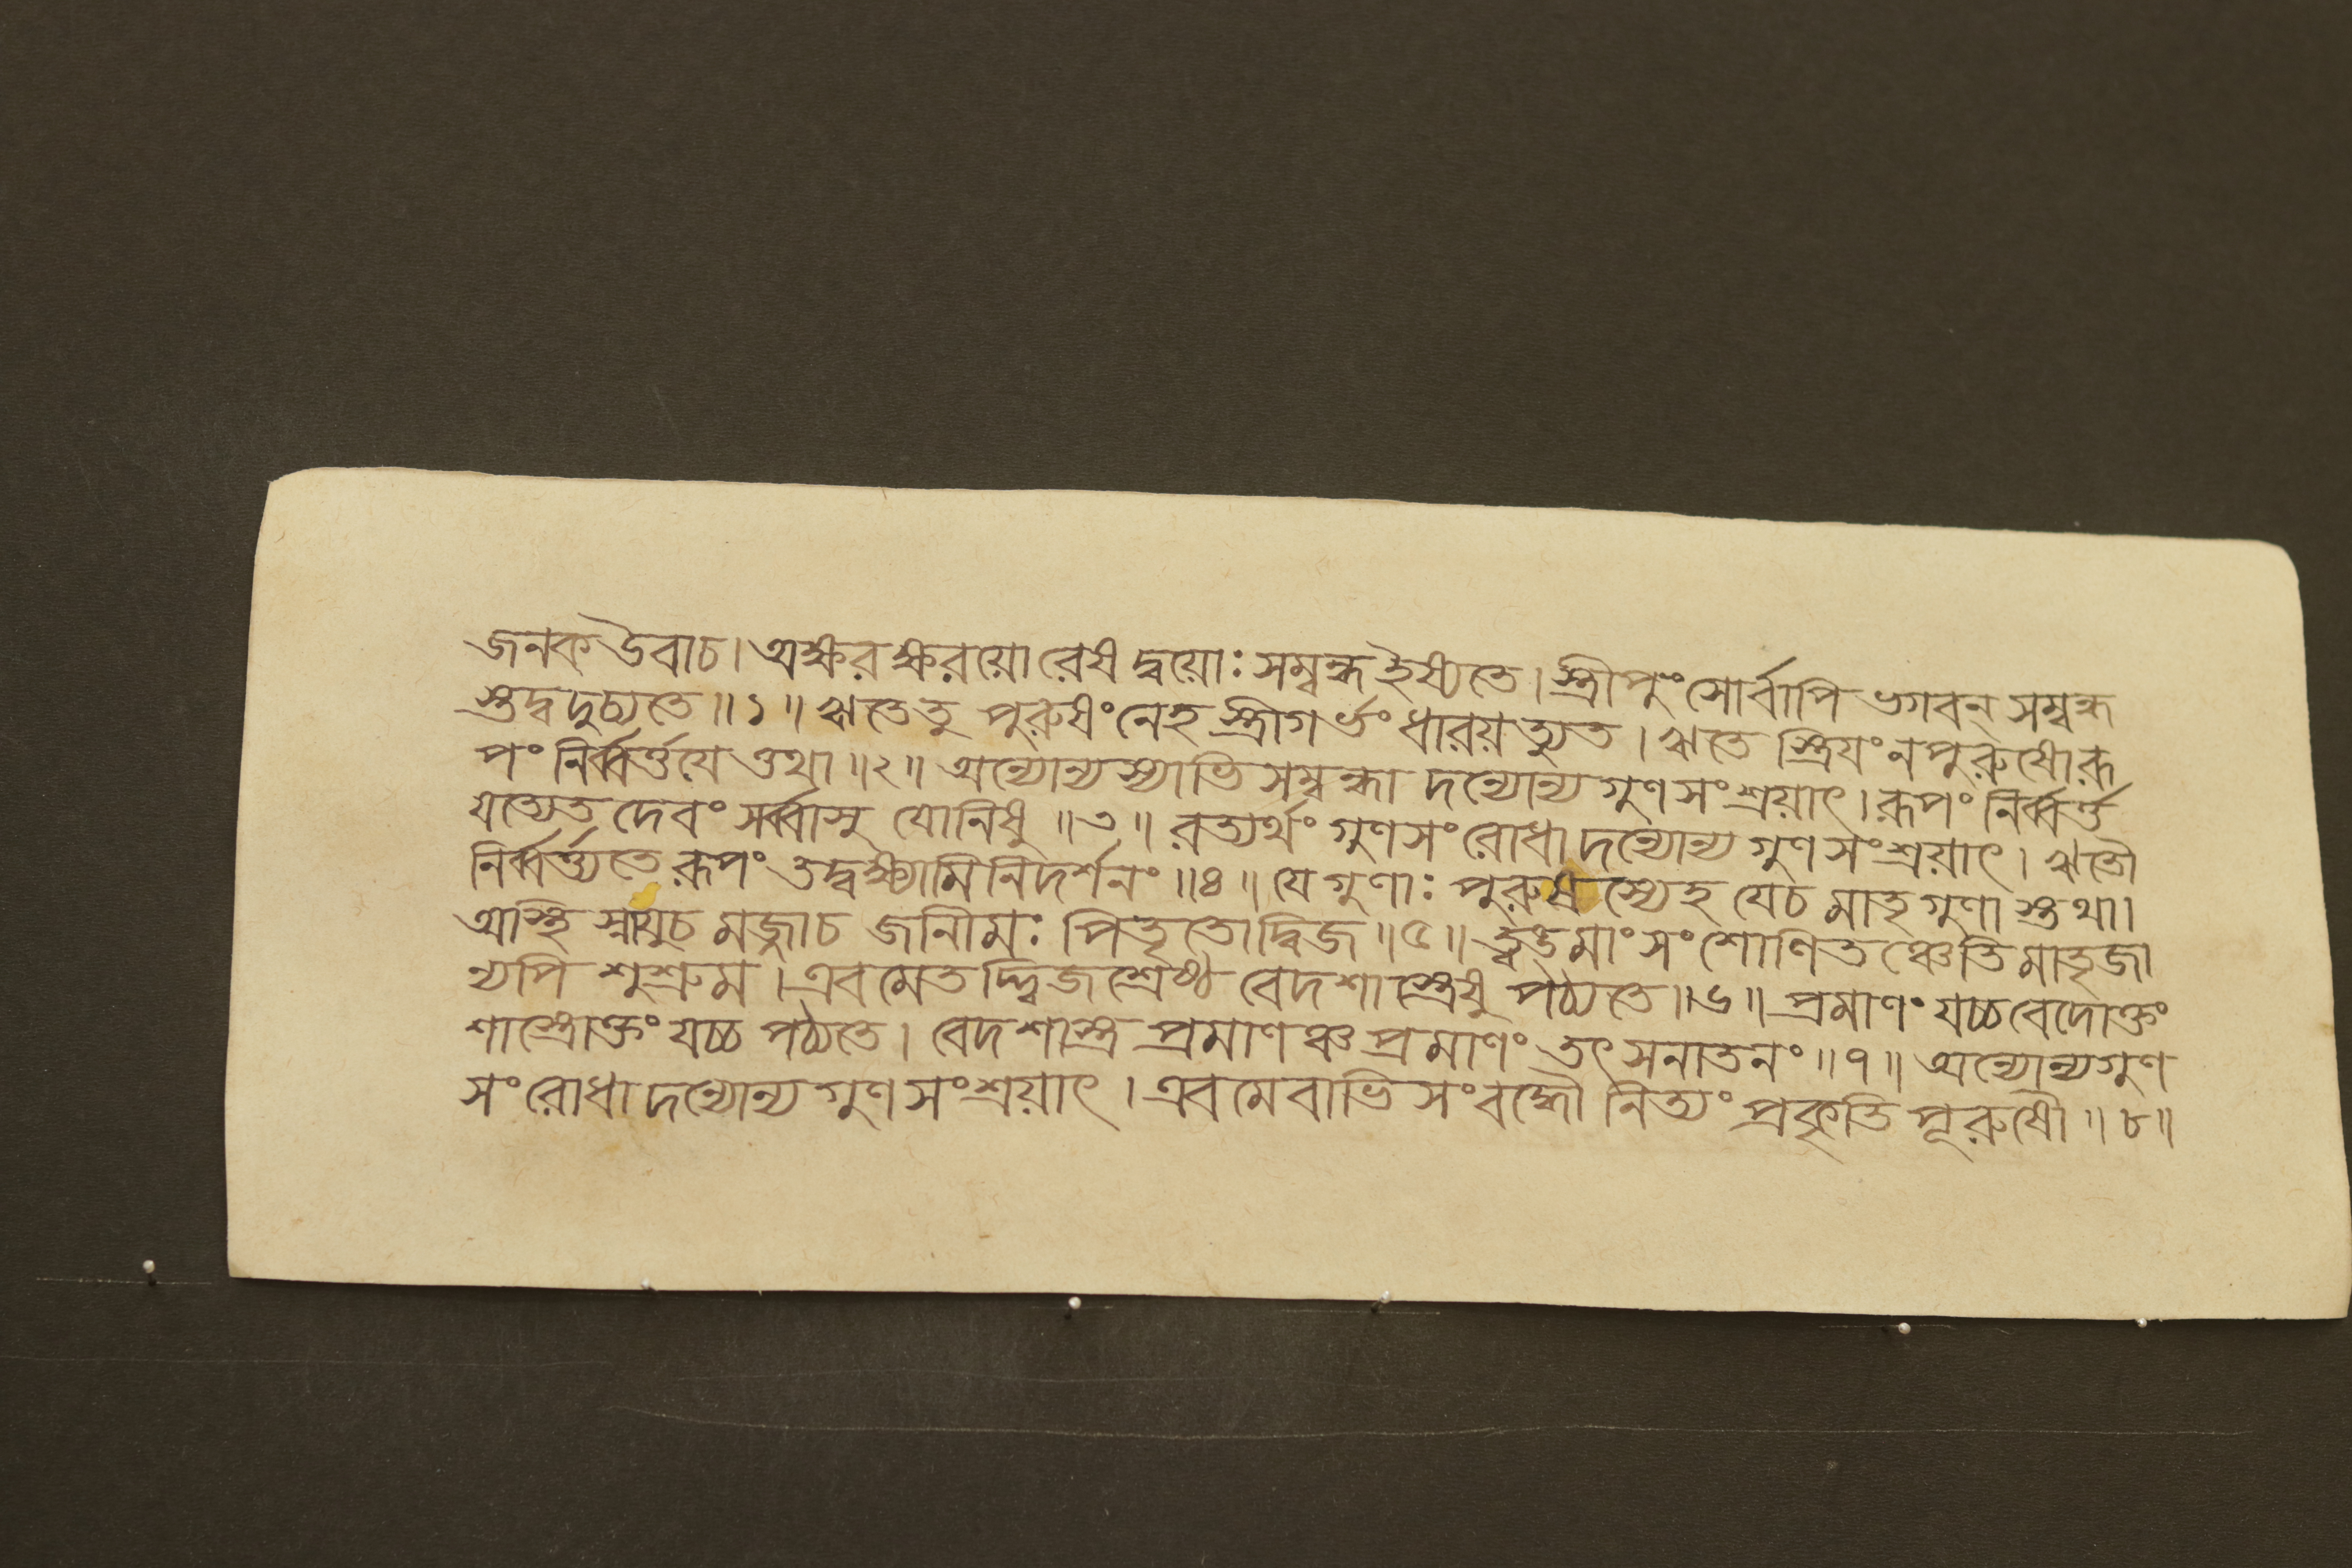 জনক উবাচ। অক্ষরক্ষরয়োরেষ দ্বয়োঃ সম্বন্ধ ইষ্যতে। স্ত্রীপুংসোর্বাপি ভগবন্ সম্বন্ধ
স্তদ্বদুচ্যতে॥১॥ ঋতে তু পুরুষং নেহ স্ত্রী গর্ভং ধারয়ত্যুত। ঋতে স্ত্রিযং ন পুরুষো রূ
পং নির্ব্বর্ত্তযেত্তথা॥২॥ অন্যোন্যস্যাভিসম্বন্ধা দন্যোন্য গুণসংশ্রয়াৎ। রূপং নির্ব্বর্ত্ত
যত্যেতদেবং সর্ব্বাসু যোনিষু॥৩॥ রত্যর্থং গুণসংরোধা দন্যোন্য গুণসংশ্রয়াৎ। ঋতৌ
নির্ব্বর্ত্ত্যতে রূপং তদ্বক্ষ্যামি নিদর্শনং॥৪॥ যে গুণাঃ পুরুষস্যেহ যে চ মাতৃগুণাস্তথা।
অস্থি স্নাযুচ মজ্জাচ জানীমঃ পিতৃতো দ্বিজ॥৫॥ ত্বঙ্মাংসং শোণিতঞ্চেতি মাতৃজা
ন্যপি শুশ্রুম। এবমেতদ্দ্বিজশ্রেষ্ঠ বেদশাস্ত্রেষু পঠ্যতে॥৬॥ প্রমাণং যচ্চ বেদোক্তং
শাস্ত্রোক্তং যচ্চ পঠ্যতে। বেদশাস্ত্র প্রমাণঞ্চ প্রমাণং তৎ সনাতনং॥৭॥ অন্যোন্যগুণ
সংরোধা দন্যোন্য গুণসংশ্রয়াৎ। এবমেবাভিসংবদ্ধৌ নিত্যং প্রকৃতি পূরুষৌ॥৮॥